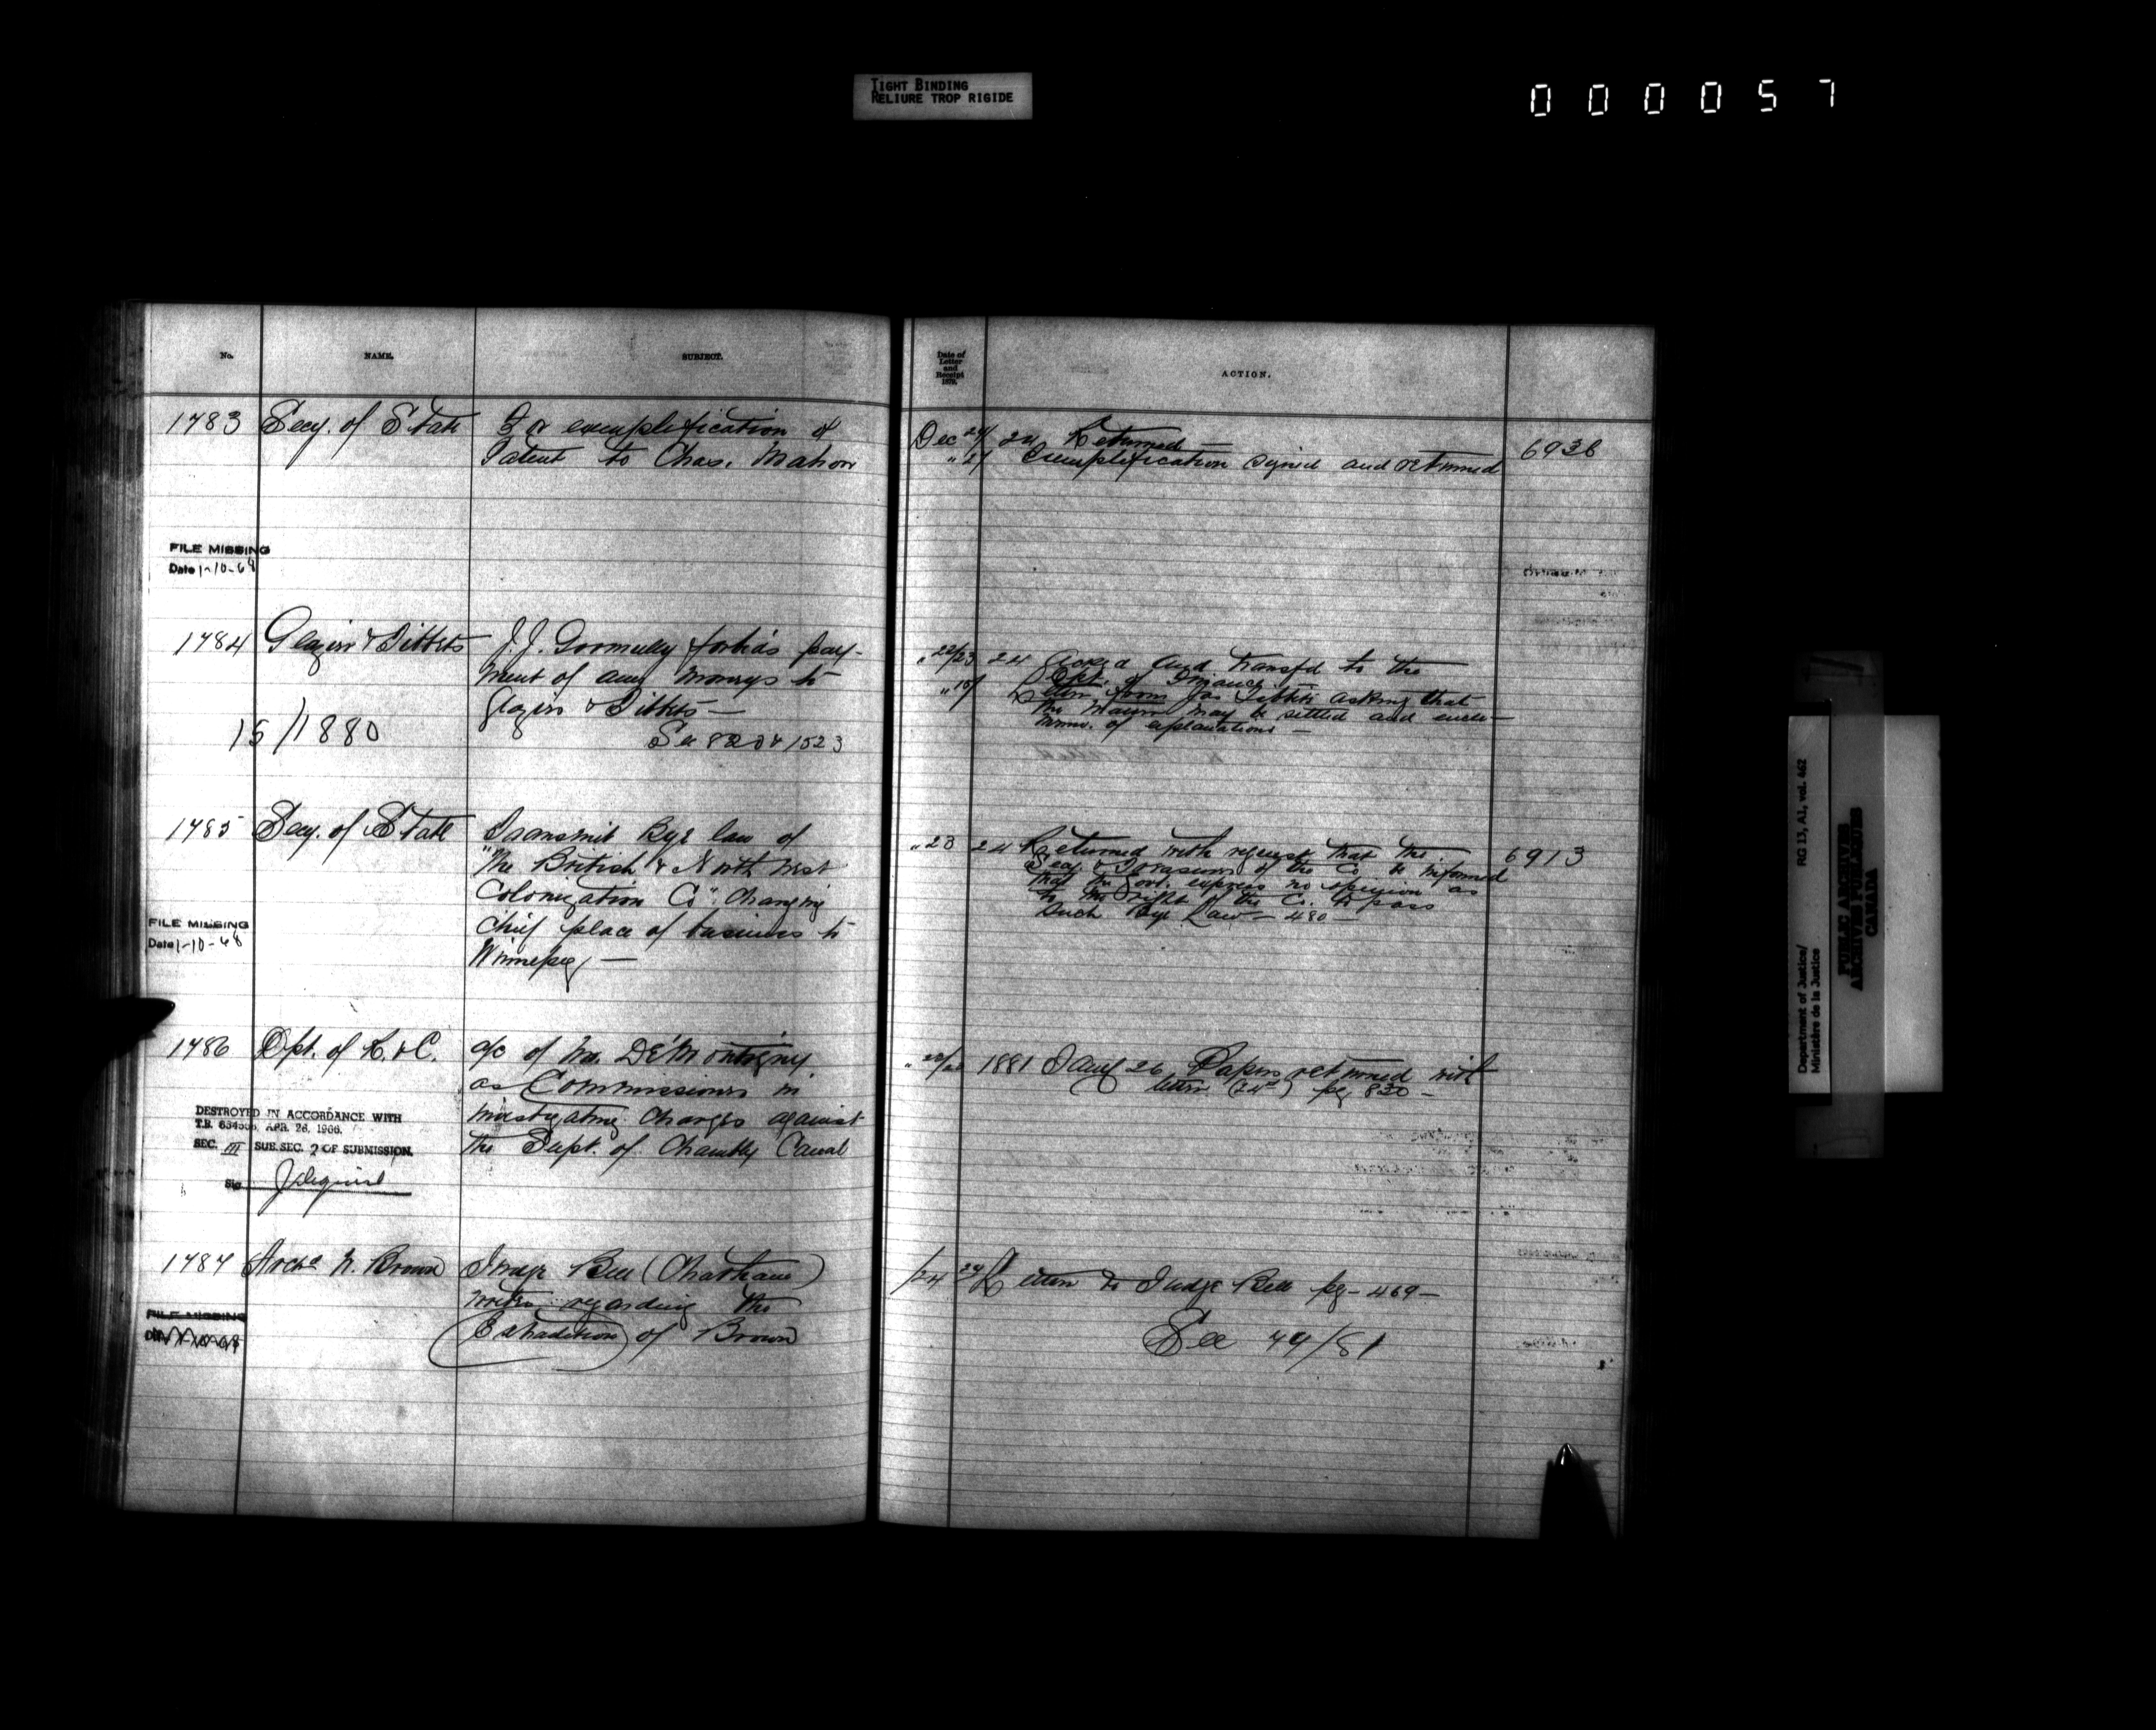 TIGHT BINDING
RELIURE TROP RIGIDE
000057
No. NAME. SUBJECT.
1783 Secy. of State For exemplification of
Patent to Chas. Mahon
FILE MISSING
Date 1-10-68
1784 Glazier & Tibbets J.J. Gormully forbids pay-
ment of any moneys to
Glazier & Tibbets —
15/1880
See 820 & 1523
1785 Secy. of State Transmit Bye law of
"The British & North West
Colonization Co". Changing
chief place of business to
Winnipeg —
FILE MISSING
Date 1-10-68
1786 Dpt. of R. & C. a/c of Mr. De Montigny
as Commissioner in
investigating charges against
the Supt. of Chambly Canal
DESTROYED IN ACCORDANCE WITH
T.B. APR. 26, 1966.
SEC. III SUB. SEC. 2 OF SUBMISSION.
Sig.
1787 Archd N. Brown Judge Bell (Chatham)
writes regarding the
Extradition of Brown
FILE MISSING
Date of
Letter
and
Receipt
1879.
ACTION.
Dec 24/ 24 Returned —
" 21 Exemplification signed and returned 6936
" 22/23 24 Acked and transfd to the
Dept. of Finance —
" 15/ Letter from Jas Tibbits asking that
the matter may be settled and enclo—
memo. of explanations —
" 23 24 Returned with request that the 6913
Secy & Treasurer of the Co. be informed
that the Govt. express no opinion as
to the right of the Co. to pass
such Bye Law — 480 —
1881 Jany 26 Papers returned with
letter (24th) pg 830 —
/24 24 Letter to Judge Bell pg — 469 —
See 49/81
Department of Justice/
Ministère de la Justice
RG 13, A1, vol. 462
PUBLIC ARCHIVES
ARCHIVES PUBLIQUES
CANADA